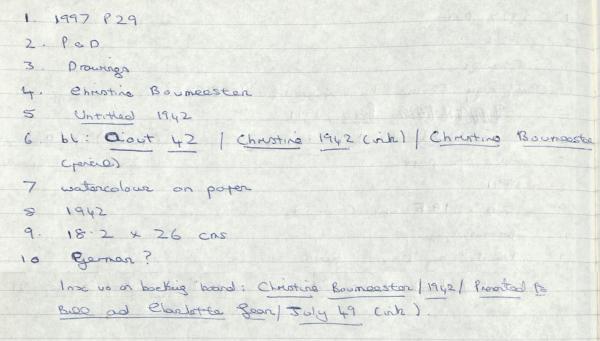 1. 1997 P29
2. P & D
3. Drawings
4. Christine Boumeester
5 Untitled 1942
6. bl: Aout 42 / Christine 1942 (ink) / Christine Boumeester
(pencil)
7 watercolour on paper
8 1942
9. 18.2 x 26 cms
10 German?
Insc vo on backing board: Christine Boumeester / 1942 / Presented to
Bill and Charlotte / July 49 (ink).